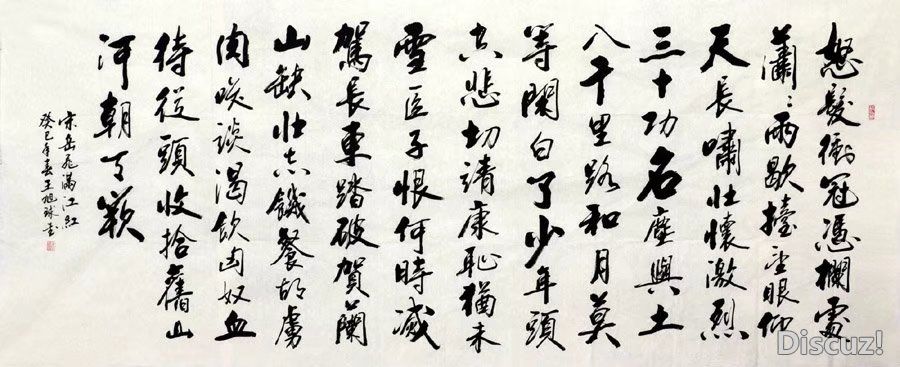 怒髮衝冠憑欄處
瀟〻雨歇擡望眼仰
天長嘯壯懷激烈
三十功名塵與土
八千里路和月莫
等閑白了少年頭
空悲切靖康恥猶未
雪臣子恨何時滅
駕長車踏破賀蘭
山缺壯志饑餐胡虜
肉笑談渴飲匈奴血
待從頭收拾舊山
河朝天闕
宋岳飛滿江紅
癸巳年春王旭球書
Discuz!